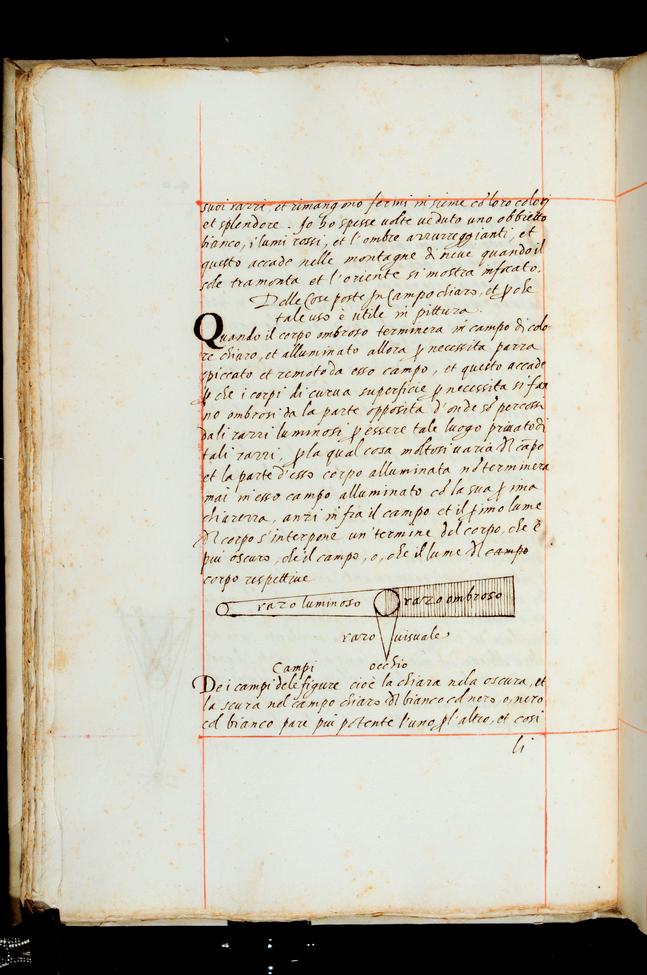 suoi razzi, et rimangono fermi insieme cō loro colori
et splendore. Io ho spesse uolte ueduto uno obbietto
bianco, i lumi rossi, et l'ombre azzurreggianti, et
questo accade nelle montagne di neue quando il
sole tramonta et l'oriente si mostra infocato.
Delle Cose poste In Campo chiaro, et ꝑ che
tale uso è utile in pittura.
Quando il corpo ombroso terminera in campo di colo-
re chiaro, et alluminato allora ꝑ necessita parra
spiccato et remoto da esso campo, et questo accade
ꝑ che i corpi di curua superficie ꝑ necessita si fan
no ombrosi da la parte opposita d'onde sō percossi
dali razzi luminosi ꝑ essere tale luogo priuato di
tali razzi, ꝑ la qual cosa molto si uaria dl cāpo
et la parte d'esso corpo alluminata nō terminera
mai in esso campo alluminato cō la sua ꝑima
chiarezza, anzi in fra il campo et il ꝑimo lume
dl corpo s'interpone un termine del corpo, che è
piu oscuro, che il campo, o, che il lume dl campo
corpo respettiue
razo luminoso razo ombroso
razo uisuale
Campi occhio
De i campi dele figure cioè la chiara nela oscura, et
la scura nel campo chiaro dl bianco col nero o nero
col bianco pare piu potente l'uno ꝑ l'altro, et cosi
li